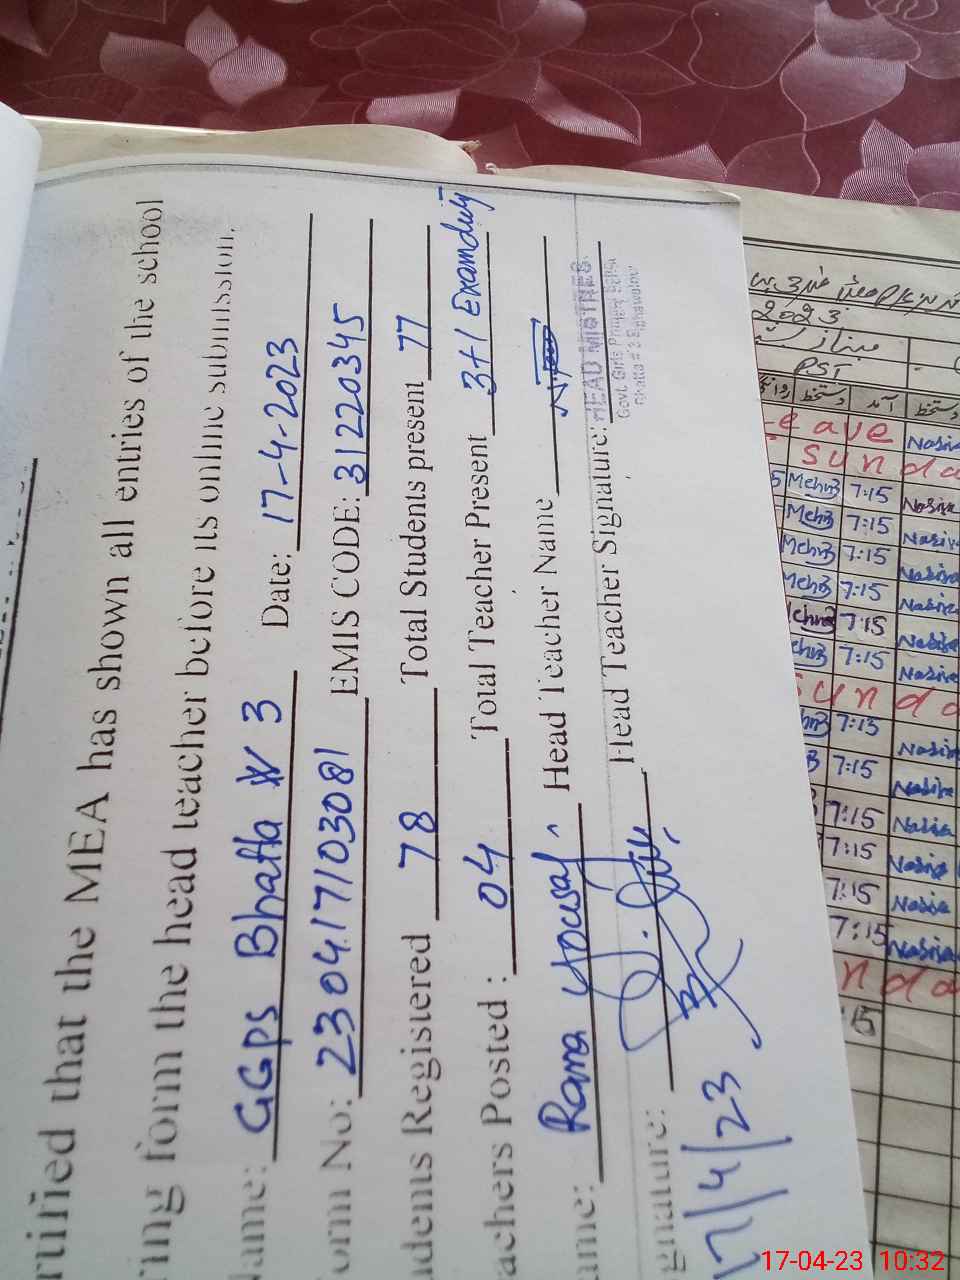 rtified that the MEA has shown all entries of the school
ring form the head teacher before its online submission.
Name: GGPS Bhatta # 3 Date: 17-4-2023
orm No: 230417103081 EMIS CODE: 31220345
udents Registered 78 Total Students present 77
achers Posted: 04 Total Teacher Present 3+1 Examduty
ame: Rana Yousaf Head Teacher Name
gnature: Head Teacher Signature:
HEAD MISTRES
Govt. Girls Primary School
17/4/23
2023
PST
دستخط آمد دستخط
Leave Nasira
Sunda
Mehnb 7:15 Nasira
Mehnb 7:15 Nasira
Mehnb 7:15 Nasira
Mehnb 7:15 Nasira
ehnb 7:15 Nasira
ehnb 7:15 Nasira
Sunda
hnb 7:15 Nasira
7:15 Nasira
7:15 Nasira
7:15 Nasira
7:15 Nasira
7:15 Nasira
nda
:15
17-04-23 10:32